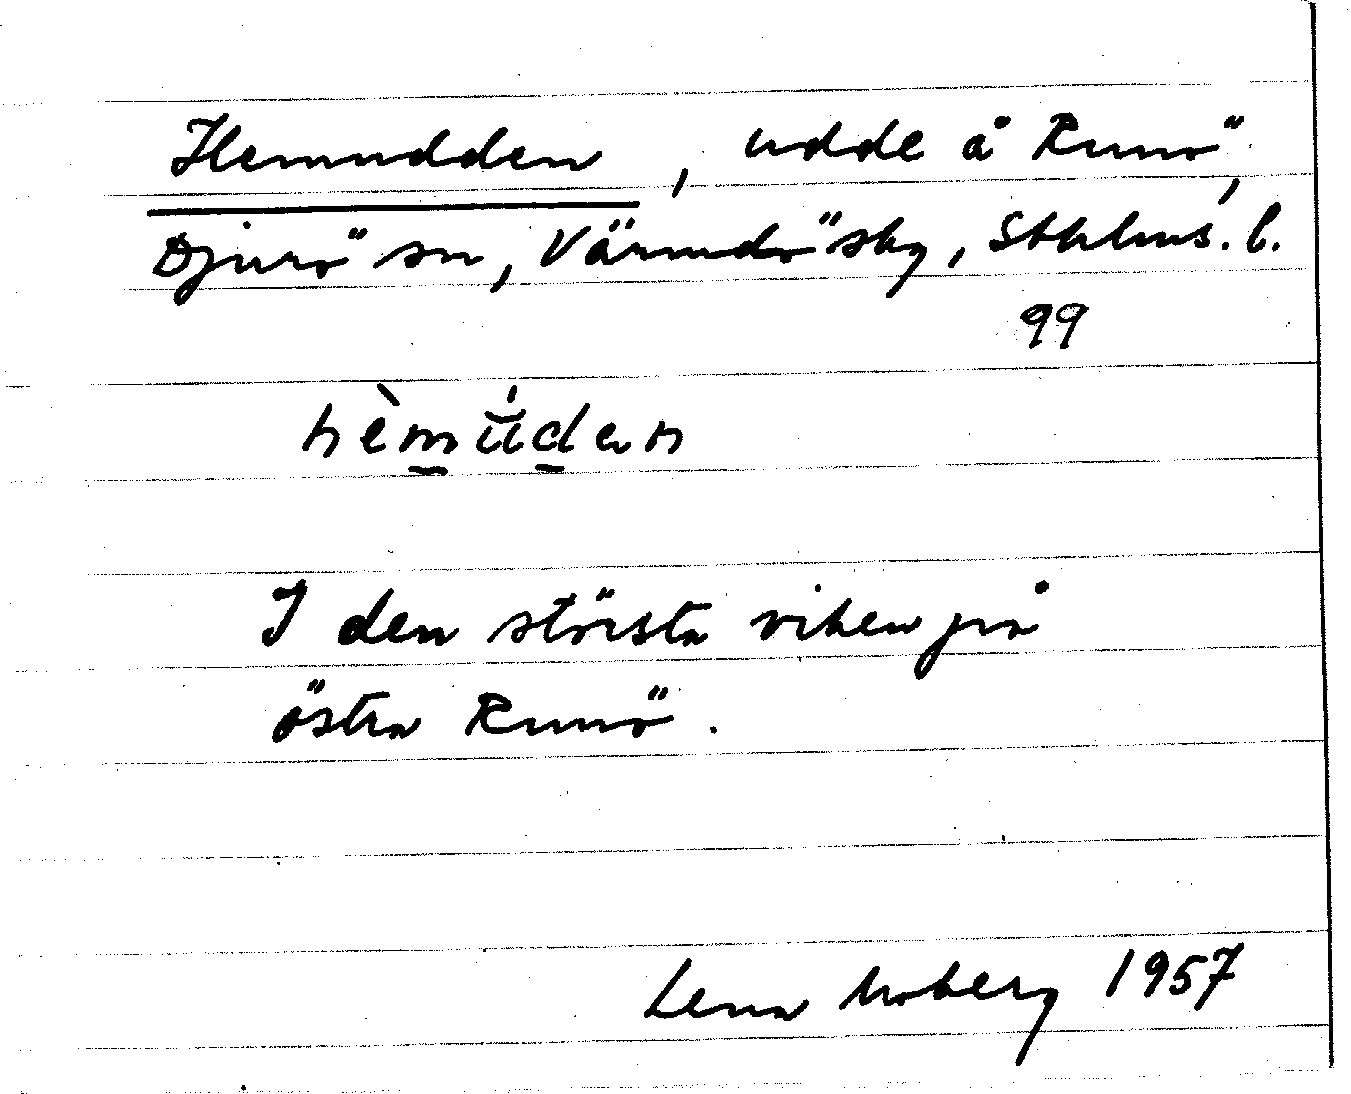 Hemudden, udde å Runö,
Djurö sn, Värmdö skg, Sthlms. l.
99
hèmúdan
I den största viken på
östra Runö.
Lena Moberg 1957